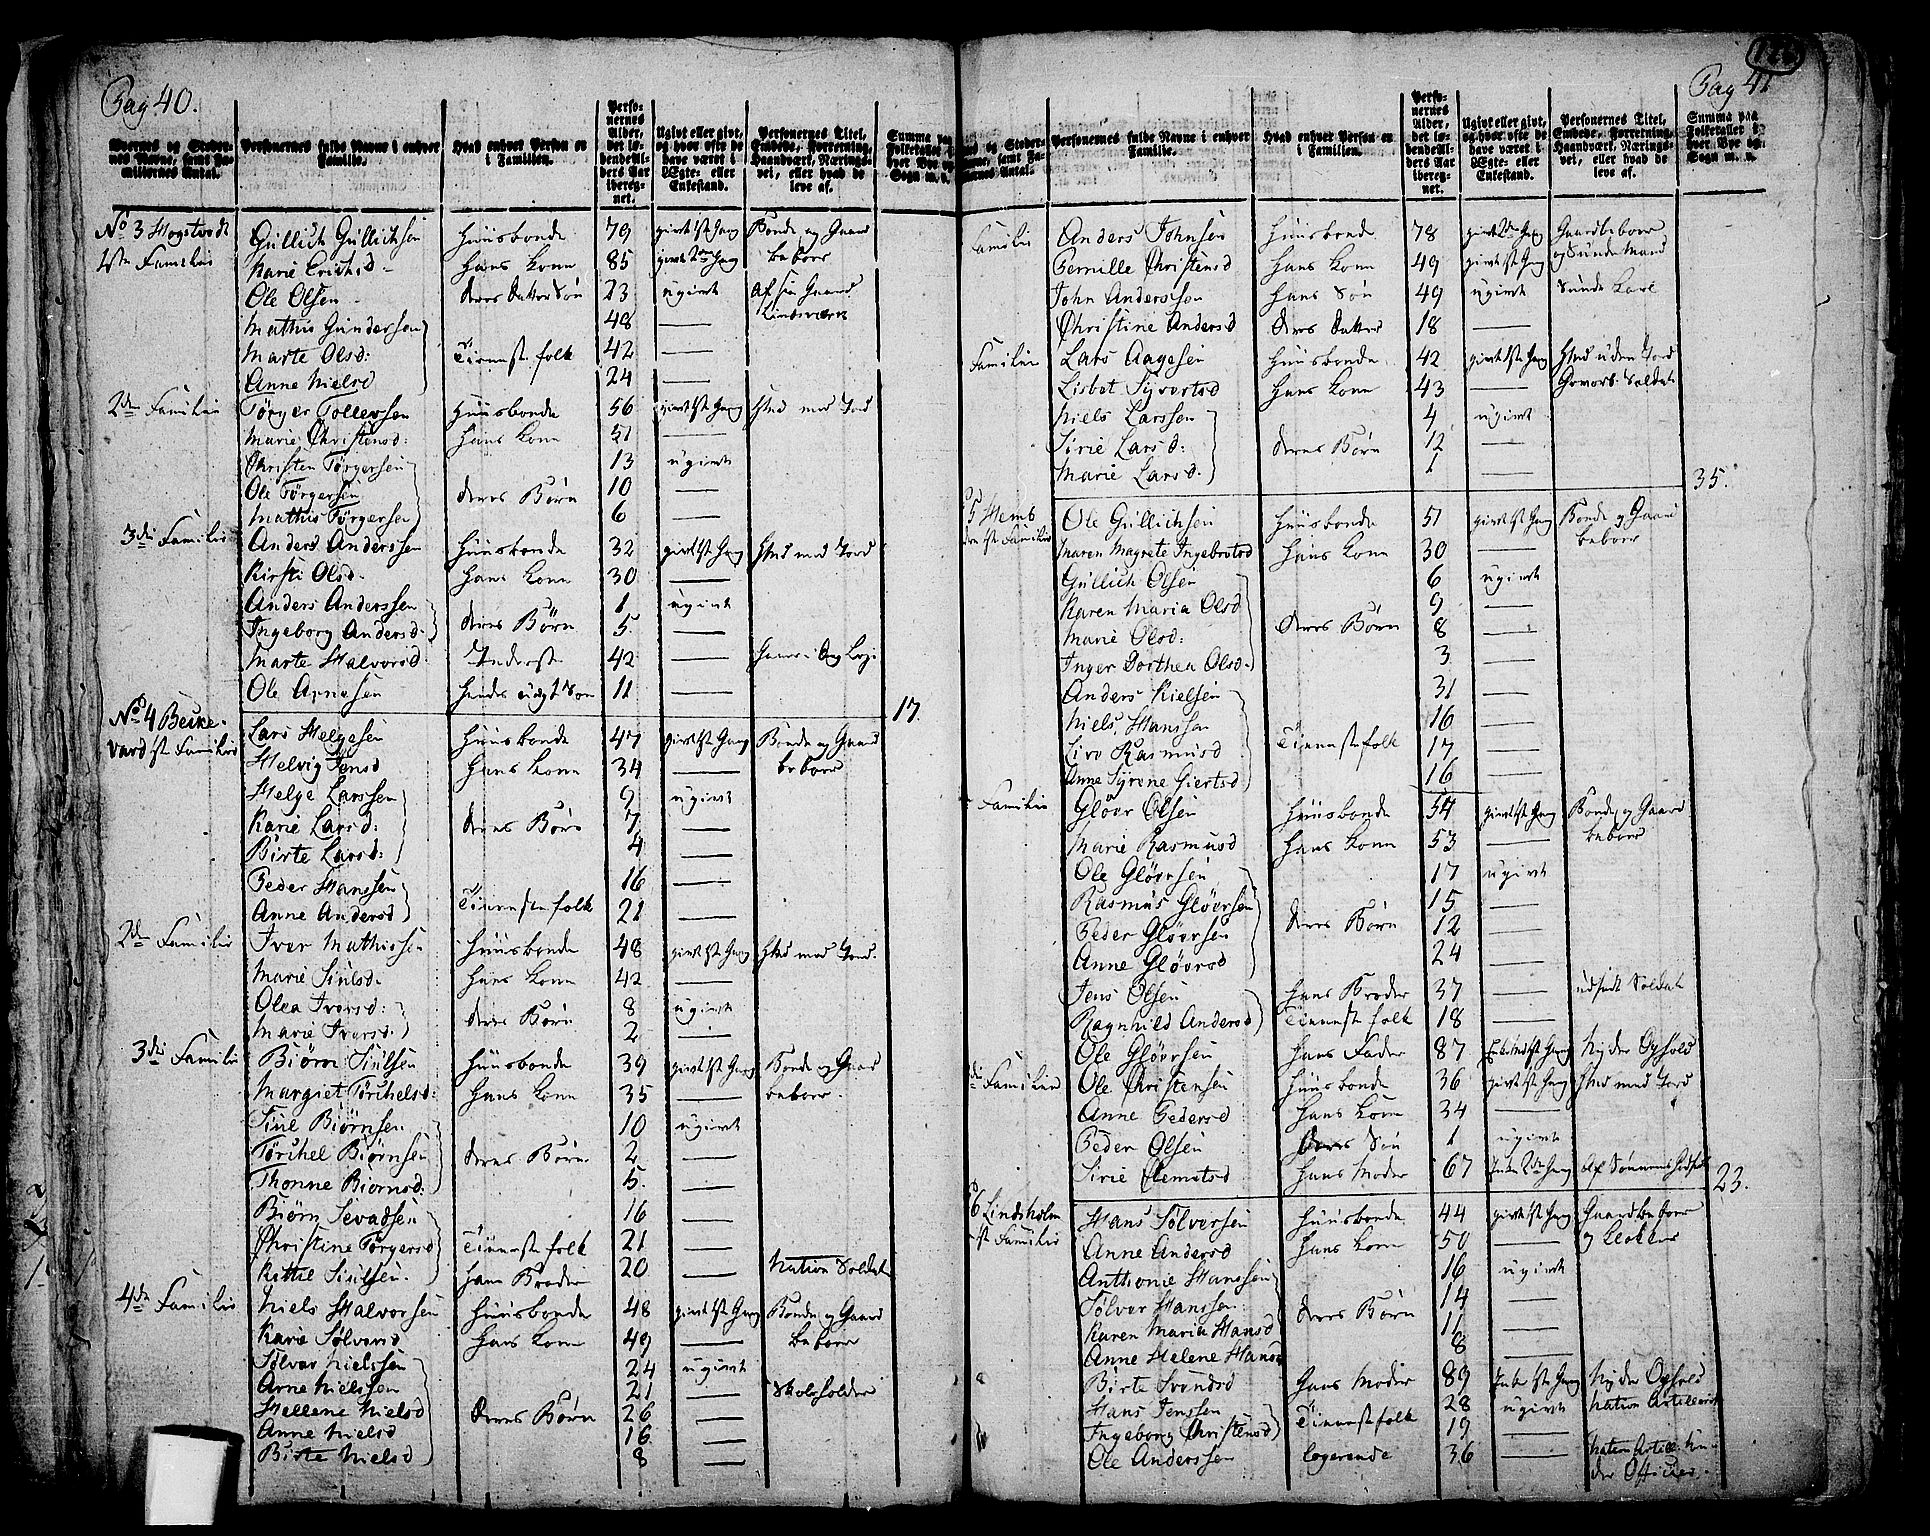 Pag 40.
Gaardernes
Personernes fulde Navne i enhver Familie.
Hvad enhver Person er i Familien.
Personernes Alder, det løbende Alders Aar iberegnet.
Ugivt eller givt, og hvor ofte de have været i Ægte- eller Enkestand.
Personernes Titel, Embede, Forretning, Haandværk, Næringsvei, eller hvad de leve af.
Summa paa Folketallet i hver Bye og Sogn m. v.
No 3 Hogstvedt Güllich Güllichsen Huusbonde 79 givt 1ste Gang Bonde og Gaard
1ste Familie Karie Erichsd. Hans Kone 85 givt 2den Gang beboer
Ole Olsen deres Datter Søn 23 ugivt af sin Gaard
Mathis Gundersen 48 —
Marte Olsd: Tienneste folk 42 —
Anne Nielsd 24 —
2den Familie Tørger Tollevsen Huusbonde 56 givt 1ste Gang Huusmd med Jord
Marie Christensd: Hans Kone 51 —
Christen Tørgersen 13 ugivt
Ole Tørgersen deres Børn 10 —
Mathis Tørgersen 6 —
3die Familie Anders Anderssen Huusbonde 32 givt 1ste Gang Hmd med Jord
Kirsti Olsd. Hans Kone 30 —
Anders Anderssen 1 ugivt
Ingeborg Andersd. deres Børn 5. —
Marte Halvorsd: Inderste 42 —
Ole Arnesen hendes uægt Søn 11 —
17.
No 4 Becke- Lars Helgesen Huusbonde 47 givt 1ste Gang Bonde og Gaard
vard 1ste Familie Helvig Jensd Hans Kone 34 — beboer
Helge Larssen 9 ugivt
Karie Larsd: deres Børn 7 —
Birte Larsd: 4 —
Peder Hanssen 16 —
Anne Andersd Tienneste folk 21 —
2den Familie Iver Mathissen Huusbonde 48 givt 1ste Gang Hmd med Jord.
Marie Siulsd. Hans Kone 42 —
Olea Iversd: 8 ugivt
Marie Iversd. deres Børn 2 —
3die Familie Biørn Siulsen Huusbonde 39 givt 1ste Gang Bonde og Gaard
Margret Torchelsd: Hans Kone 35 — beboer.
Siul Biørnsen 10 ugivt
Torchel Biørnsen deres Børn 2 —
Thonne Biørnsd: 5. —
Biørn Sevadsen 16 —
Christine Tørgersd Tienneste folk 21 —
Kittil Siulsen. Hans Broder 20 — Nation Soldat
4de Familie Niels Halvorsen Huusbonde 48 givt 1ste Gang Bonde og Gaard
Karie Sølversd Hans Kone 49 — beboer
Sølver Nielssen 24 ugivt
Arne Nielssen 21 — Skoleholder
Hellene Nielsd deres Børn 26 —
Anne Nielsd 16 —
Birte Nielsd 8 —
Pag 41
Personernes fulde Navne i enhver Familie.
Hvad enhver Person er i Familien.
Personernes Alder, det løbende Alders Aar iberegnet.
Ugivt eller givt, og hvor ofte de have været i Ægte- eller Enkestand.
Personernes Titel, Embede, Forretning, Haandværk, Næringsvei, eller hvad de leve af.
Summa paa Folketallet i hver Bye og Sogn m. v.
Familie Anders Johnsen Huusbonde 78 givt 2den Gang Gaardbeboer
Pernille Christensd Hans Kone 49 givt 1ste Gang
John Anderssen Hans Søn 49 ugivt
Christine Andersd deres Datter 18 —
Familie Lars Aagesen Huusbonde 42 givt 1ste Gang Hmd uden Jord
Lisbet Syvertsd Hans Kone 43 — Gevorb: Soldat
Niels Larssen 4 ugivt
Sirie Larsd: deres Børn 12 —
Marie Larsd. 1 —
35.
5 Hemb Ole Güllichsen Huusbonde 51 givt 1ste Gang Bonde og Gaard
1ste Familie Maren Magrete Ingebretsd Hans Kone 30 — beboer
Güllich Olsen 6 ugivt
Karen Maria Olsd 9 —
Marie Olsd: deres Børn 8 —
Inger Dorthea Olsd. 3 —
Anders Kielsen 31 —
Niels Hanssen 16 —
Live Rasmusd Tienneste folk 17 —
Anne Syrene Siertsd 16 —
Familie Gløer Olsen Huusbonde 54 givt 1ste Gang Bonde og Gaard
Marie Rasmusd Hans Kone 53 — beboer
Ole Gløersen 17 ugivt
Rasmus Gløersen 15 —
Peder Gløersen deres Børn 12 —
Anne Gløersd 24 —
Jens Olsen Hans Broder 37 — udtient Soldat
Ragnhild Andersd Tienneste folk 18 —
Ole Gløersen Hans Fader 87 Enkemd 1ste Gang Nyder Ophold
Familie Ole Christensen Huusbonde 36 givt 1ste Gang Hmd med Jord
Anne Pedersd Hans Kone 34 —
Peder Olsen deres Søn 1 ugivt
Sirie Clemetsd Hans Moder 67 Enke 2den Gang
23.
6 Lindsholm Hans Sølversen Huusbonde 44 givt 1ste Gang Gaardbeboer
1ste Familie Anne Andersd Hans Kone 50 — og Klokker
Anthonie Hanssen 16 ugivt
Sølver Hanssen 14 —
Karen Maria Hansd deres Børn 11 —
Anne Helene Hansd 8 —
Birte Svendsd Hans Moder 89 Enke 1ste Gang Nyder Ophold
Hans Jenssen 28 ugivt Nation Artillerist
Ingeborg Christensd Tienneste folk 19 —
Ole Anderssen logerende 36 — Nation Artille: Un-
der Officier.